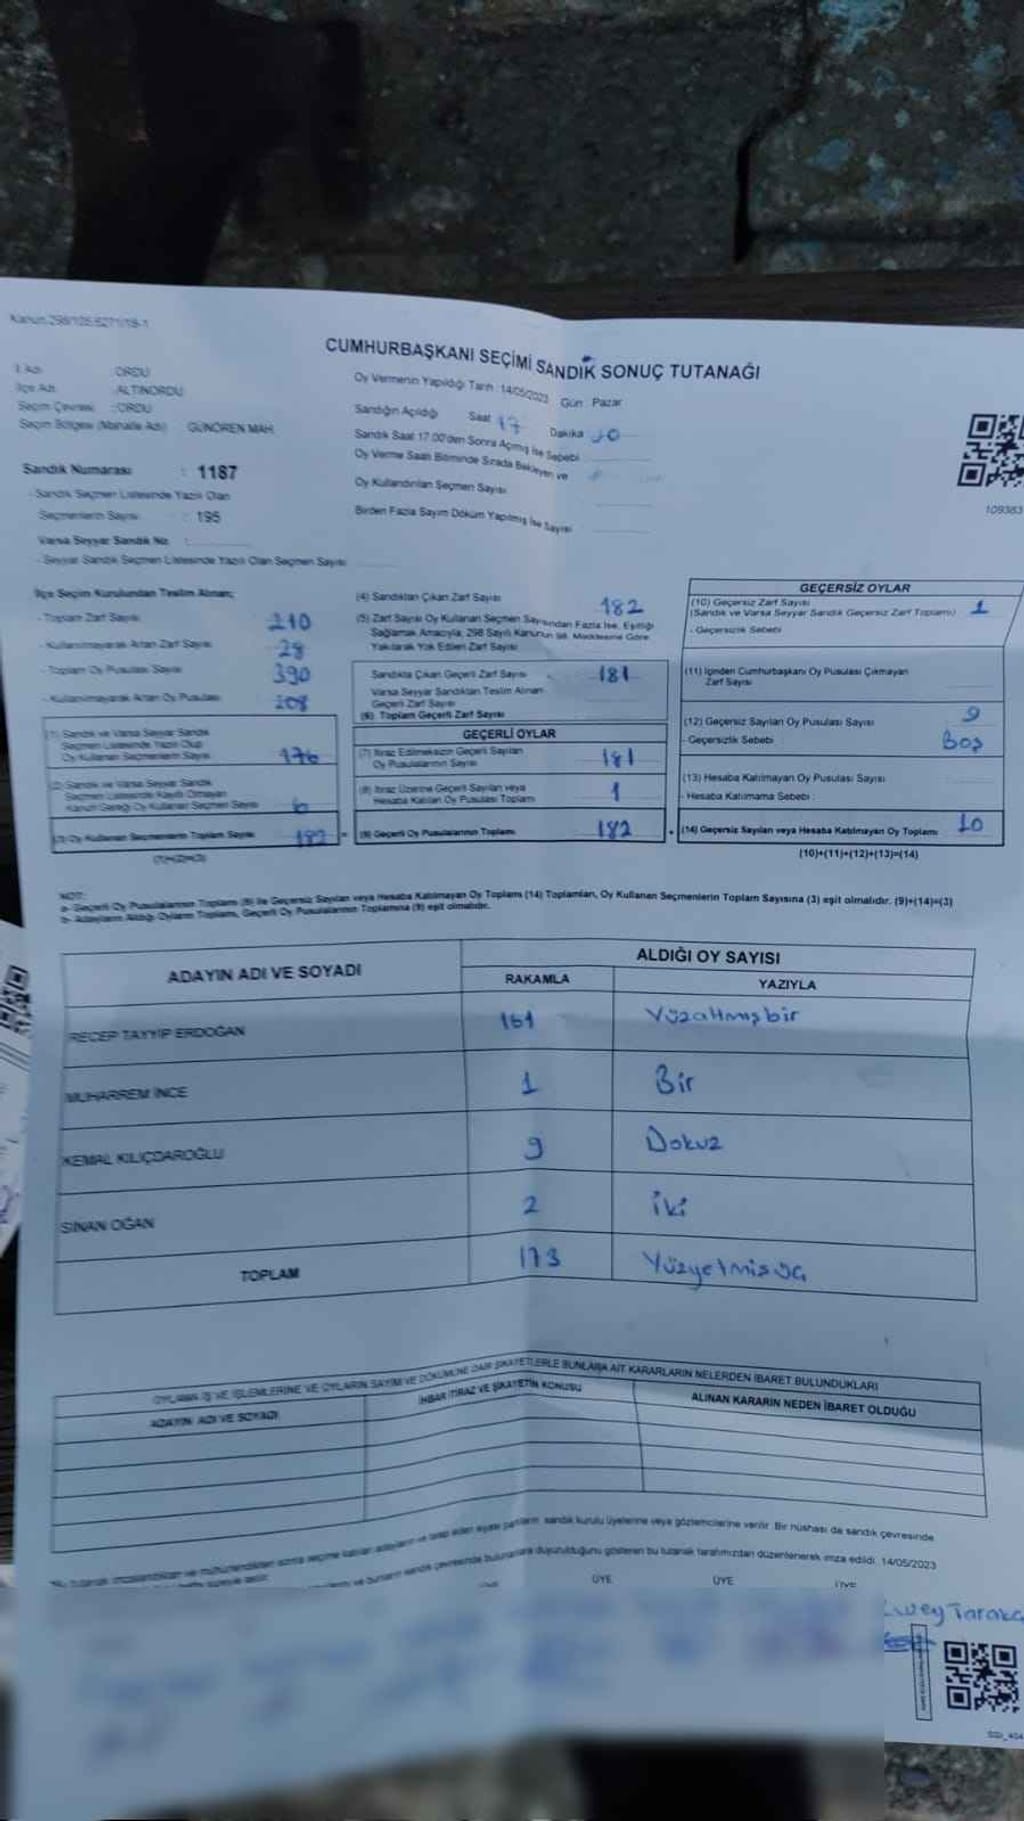 Kanun:298/105;6271/19-1
CUMHURBAŞKANI SEÇİMİ SANDIK SONUÇ TUTANAĞI
İl Adı : ORDU
İlçe Adı : ALTINORDU
Seçim Çevresi : ORDU
Seçim Bölgesi (Mahalle Adı) GÜNÖREN MAH.
Oy Vermenin Yapıldığı Tarih : 14/05/2023 Gün : Pazar
Sandığın Açıldığı Saat 17 Dakika
Sandık Saat 17.00'den Sonra Açmış İse Sebebi
Oy Verme Saati Bitiminde Sırada Bekleyen ve
Oy Kullandırılan Seçmen Sayısı
Birden Fazla Sayım Döküm Yapılmış İse Sayısı
109383
Sandık Numarası : 1187
- Sandık Seçmen Listesinde Yazılı Olan
Seçmenlerin Sayısı : 195
Varsa Seyyar Sandık No :
- Seyyar Sandık Seçmen Listesinde Yazılı Olan Seçmen Sayısı
İlçe Seçim Kurulundan Teslim Alınan;
- Toplam Zarf Sayısı 210
- Kullanılmayarak Artan Zarf Sayısı 28
- Toplam Oy Pusulası Sayısı 390
- Kullanılmayarak Artan Oy Pusulası 208
(1) Sandık ve Varsa Seyyar Sandık
Seçmen Listesinde Yazılı Olup
Oy Kullanan Seçmenlerin Sayısı 176
(2) Sandık ve Varsa Seyyar Sandık
Seçmen Listesinde Kayıtlı Olmayan
Kanun Gereği Oy Kullanan Seçmen Sayısı 6
(3) Oy Kullanan Seçmenlerin Toplam Sayısı 182 =
(1)+(2)=(3)
(4) Sandıktan Çıkan Zarf Sayısı 182
(5) Zarf Sayısı Oy Kullanan Seçmen Sayısından Fazla İse, Eşitliği
Sağlamak Amacıyla, 298 Sayılı Kanunun 98. Maddesine Göre
Yakılarak Yok Edilen Zarf Sayısı
Sandıkta Çıkan Geçerli Zarf Sayısı 181
Varsa Seyyar Sandıktan Teslim Alınan
Geçerli Zarf Sayısı
(6) Toplam Geçerli Zarf Sayısı
GEÇERLİ OYLAR
(7) İtiraz Edilmeksizin Geçerli Sayılan
Oy Pusulalarının Sayısı 181
(8) İtiraz Üzerine Geçerli Sayılan veya
Hesaba Katılan Oy Pusulası Toplamı 1
(9) Geçerli Oy Pusulalarının Toplamı 182 +
GEÇERSİZ OYLAR
(10) Geçersiz Zarf Sayısı
(Sandık ve Varsa Seyyar Sandık Geçersiz Zarf Toplamı) 1
- Geçersizlik Sebebi
(11) İçinden Cumhurbaşkanı Oy Pusulası Çıkmayan
Zarf Sayısı
(12) Geçersiz Sayılan Oy Pusulası Sayısı 9
- Geçersizlik Sebebi Boş
(13) Hesaba Katılmayan Oy Pusulası Sayısı
- Hesaba Katılmama Sebebi :
(14) Geçersiz Sayılan veya Hesaba Katılmayan Oy Toplamı 10
(10)+(11)+(12)+(13)=(14)
NOT:
a- Geçerli Oy Pusulalarının Toplamı (9) ile Geçersiz Sayılan veya Hesaba Katılmayan Oy Toplamı (14) Toplamları, Oy Kullanan Seçmenlerin Toplam Sayısına (3) eşit olmalıdır. (9)+(14)=(3)
b- Adayların Aldığı Oyların Toplamı, Geçerli Oy Pusulalarının Toplamına (9) eşit olmalıdır.
ADAYIN ADI VE SOYADI ALDIĞI OY SAYISI
RAKAMLA YAZIYLA
RECEP TAYYİP ERDOĞAN 161 Yüzaltmışbir
MUHARREM İNCE 1 Bir
KEMAL KILIÇDAROĞLU 9 Dokuz
SİNAN OĞAN 2 İki
TOPLAM 173
OYLAMA İŞ VE İŞLEMLERİNE VE OYLARIN SAYIM VE DÖKÜMÜNE DAİR ŞİKAYETLERLE BUNLARA AİT KARARLARIN NELERDEN İBARET BULUNDUKLARI
ADAYIN ADI VE SOYADI İHBAR İTİRAZ VE ŞİKAYETİN KONUSU ALINAN KARARIN NEDEN İBARET OLDUĞU
sandık kurulu üyelerine veya gözlemcilerine verilir. Bir nüshası da sandık çevresinde
duyurulduğunu gösteren bu tutanak tarafımızdan düzenlenerek imza edildi. 14/05/2023
ÜYE ÜYE ÜYE ÜYE